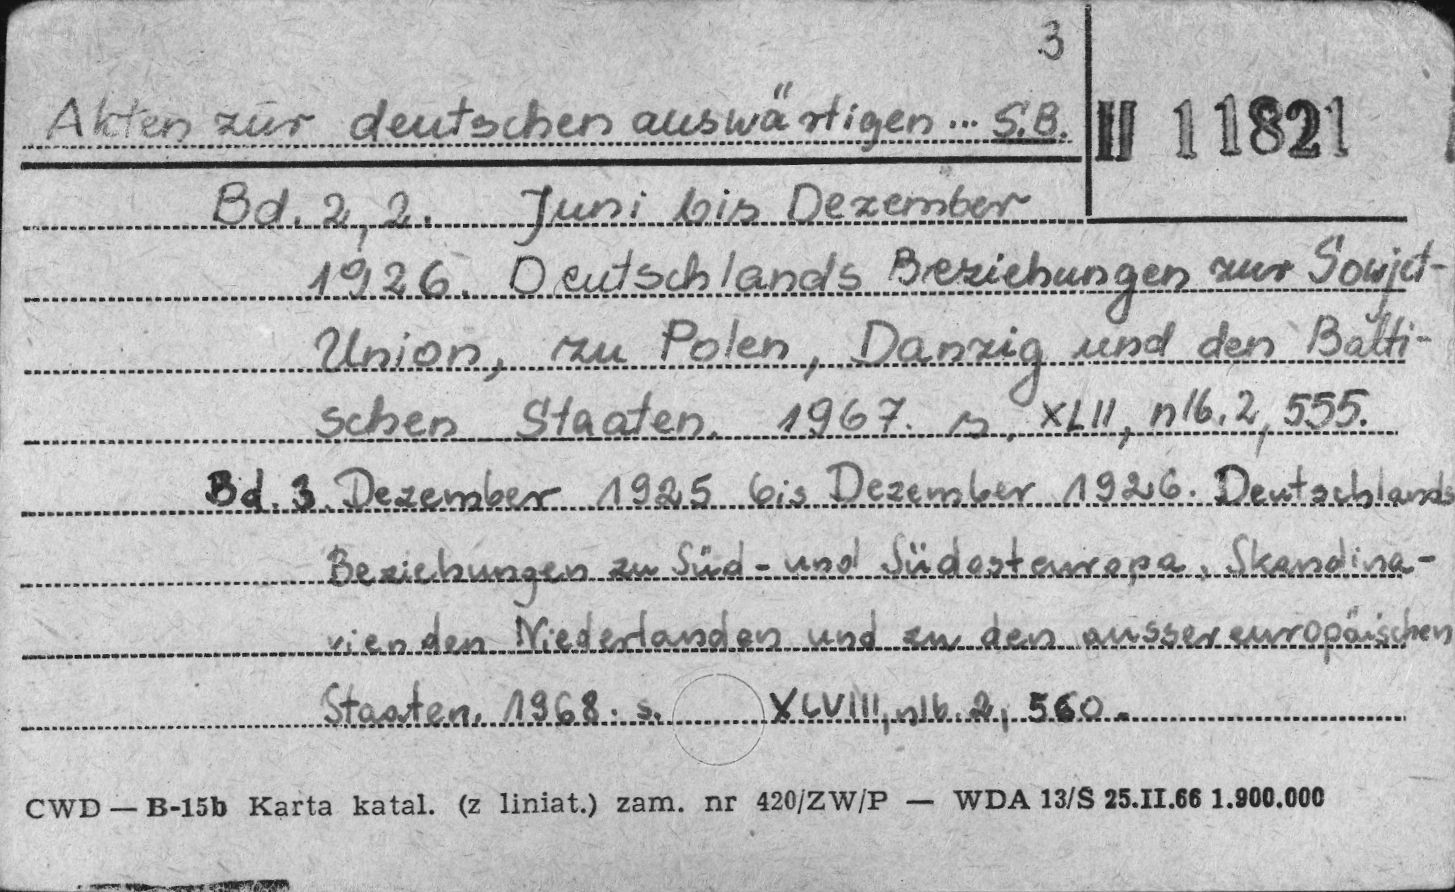 3
Akten zur deutschen auswärtigen... S.B.
II 11821
Bd. 2,2. Juni bis Dezember
1926. Deutschlands Beziehungen zur Sowjet-
Union, zu Polen, Danzig und den Balti-
schen Staaten. 1967. s. XLII, nlb. 2, 555.
Bd. 3. Dezember 1925 bis Dezember 1926. Deutschlands
Beziehungen zu Süd- und Südosteuropa, Skandina-
vien den Niederlanden und zu den aussereuropäischen
Staaten. 1968. s. XLVIII, nlb. 2, 560.
CWD — B-15b Karta katal. (z liniat.) zam. nr 420/ZW/P — WDA 13/S 25.II.66 1.900.000